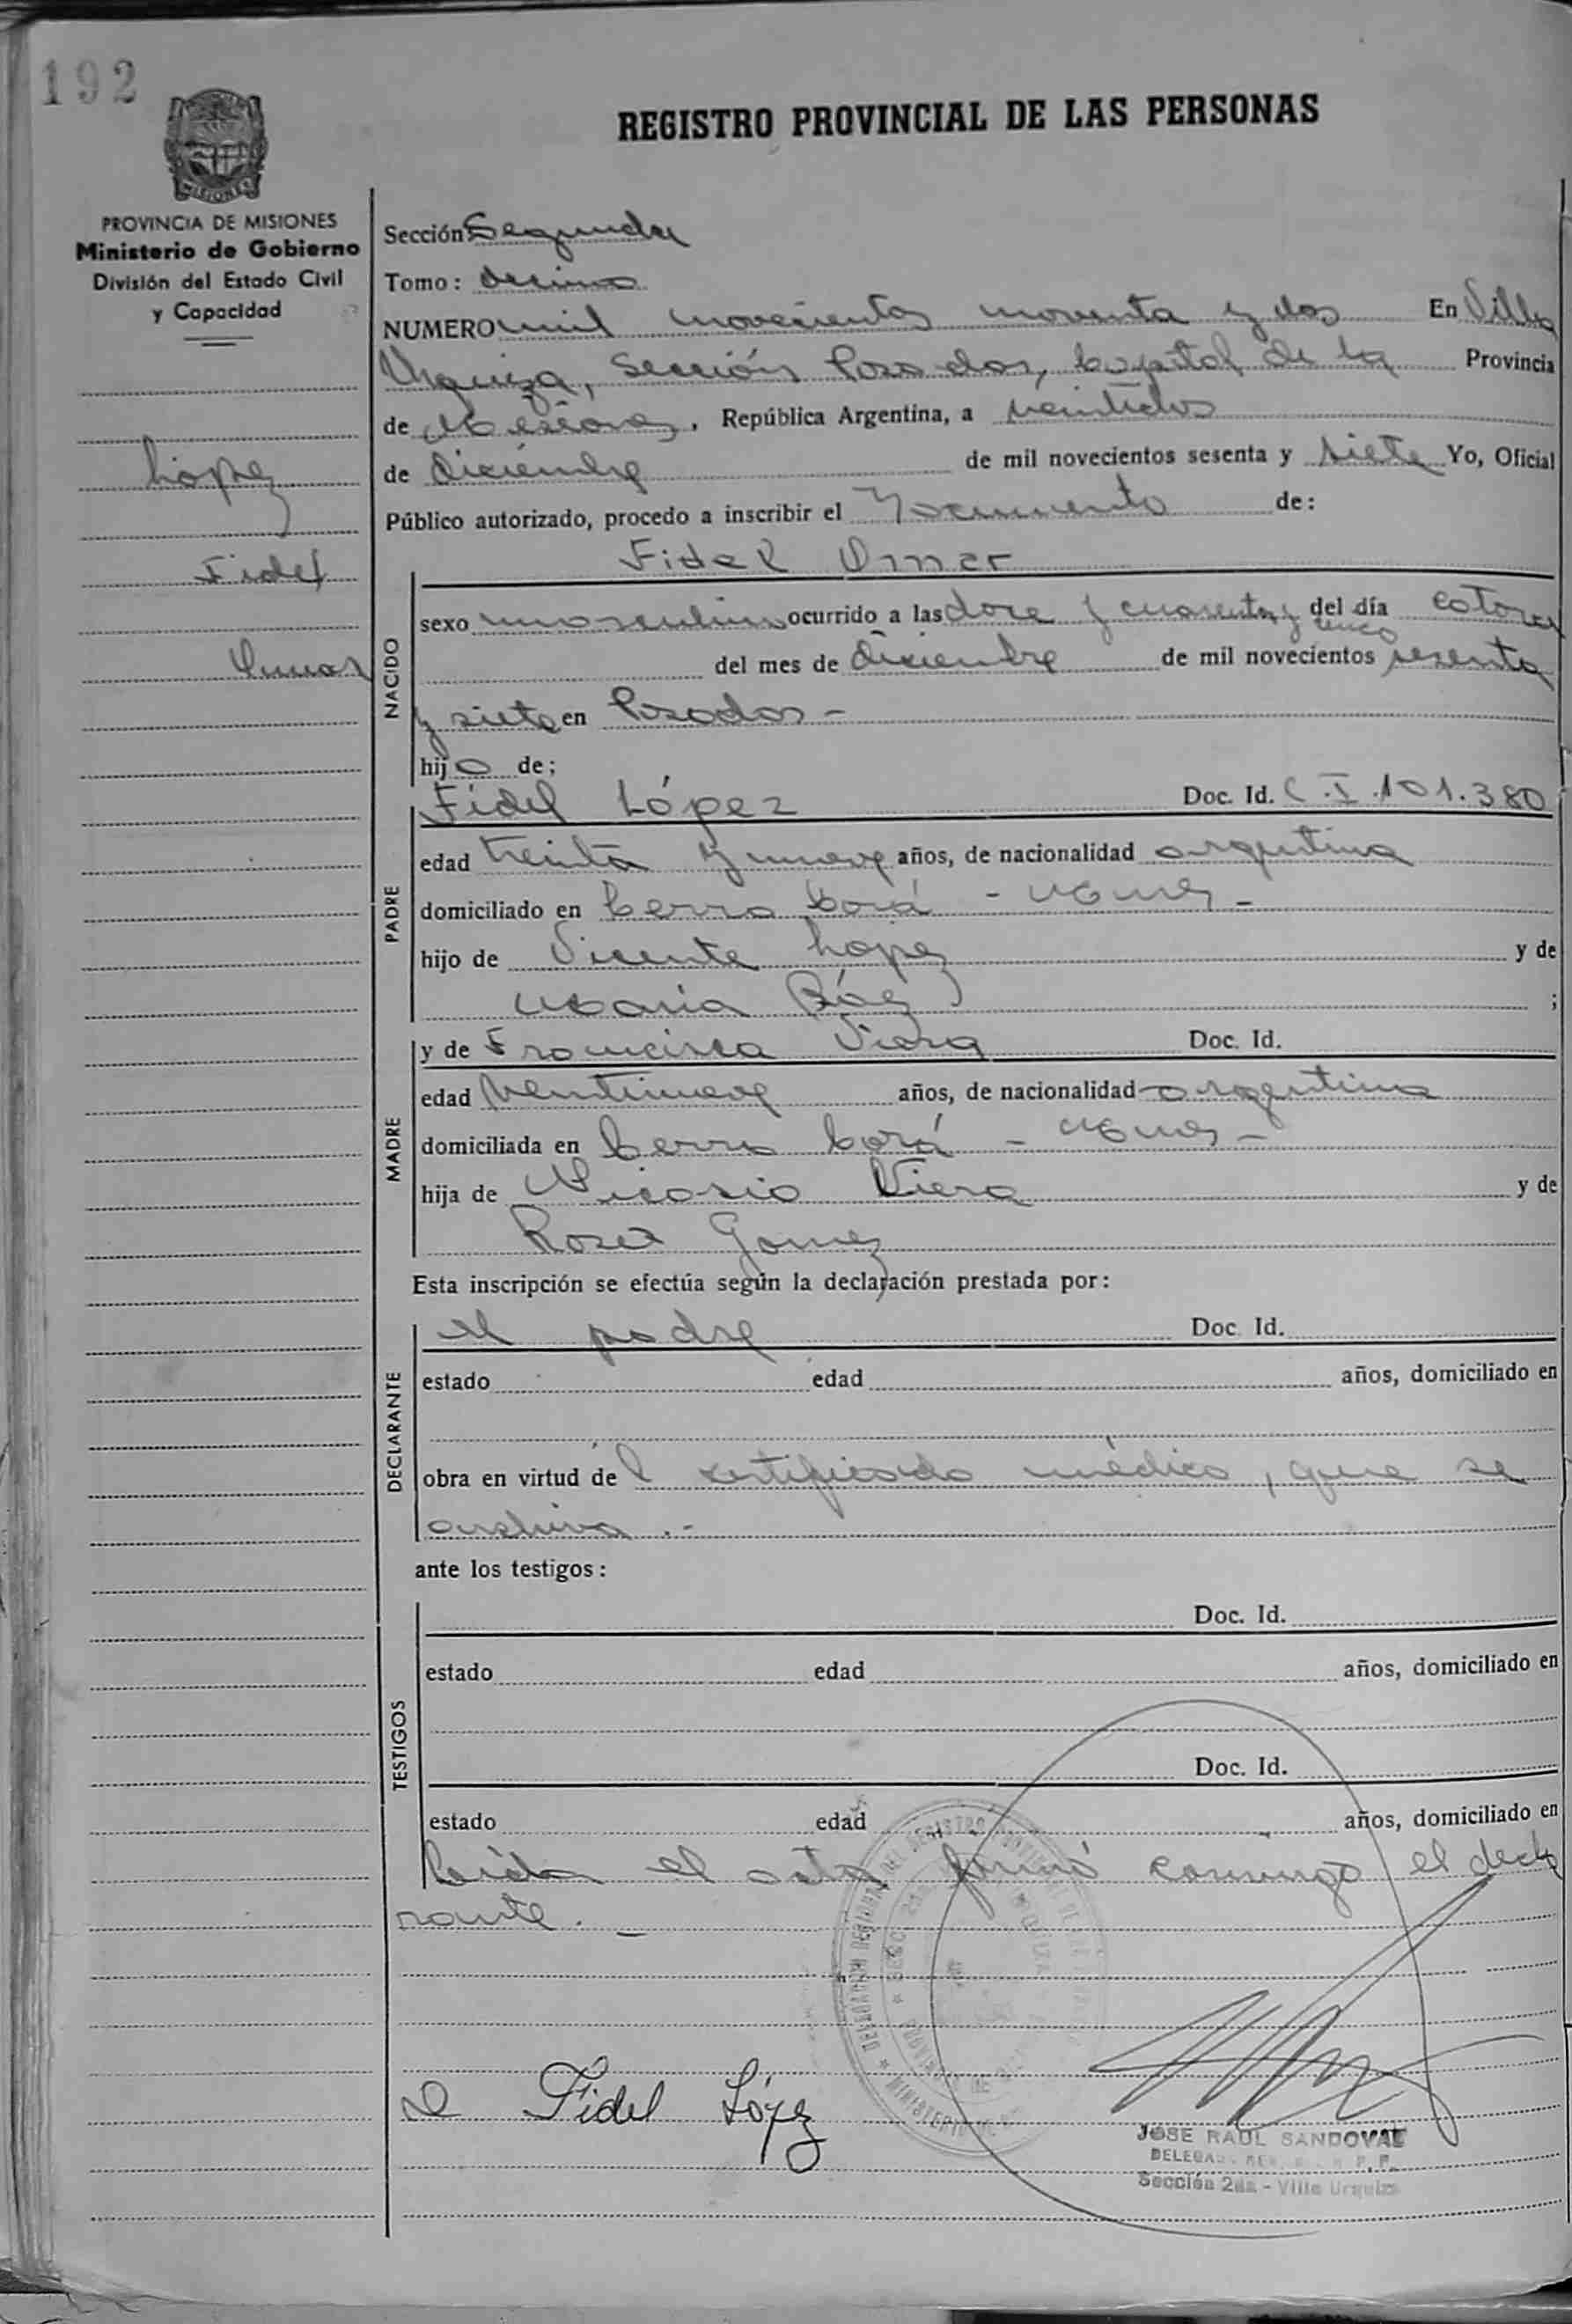 192
REGISTRO PROVINCIAL DE LAS PERSONAS
MISIONES
PROVINCIA DE MISIONES
Ministerio de Gobierno
División del Estado Civil
y Capacidad
López
Fidel
Omar
Sección: Segunda
Tomo: decimo
NUMERO mil novecientos noventa y dos En Villa
Urquiza, Sección Posadas, Capital de la Provincia
de Misiones, República Argentina, a veintidos
de diciembre de mil novecientos sesenta y siete Yo, Oficial
Público autorizado, procedo a inscribir el nacimiento de:
Fidel Omar
NACIDO
sexo masculino ocurrido a las doce y cuarenta y cinco del día catorce
del mes de diciembre de mil novecientos sesenta
y siete en Posadas -
hijo de;
PADRE
Fidel López Doc. Id. C.I. 101.380
edad treinta y nueve años, de nacionalidad argentina
domiciliado en Cerro Corá - Mnes -
hijo de Vicente López y de
María Báez ;
MADRE
y de Francisca Viera Doc. Id.
edad veintinueve años, de nacionalidad argentina
domiciliada en Cerro Corá - Mnes -
hija de Nicasio Viera y de
Rosa Gomez
Esta inscripción se efectúa según la declaración prestada por:
DECLARANTE
el padre Doc. Id.
estado edad años, domiciliado en
obra en virtud del certificado médico, que se
archiva .-
ante los testigos:
TESTIGOS
Doc. Id.
estado edad años, domiciliado en
Doc. Id.
estado edad años, domiciliado en
Leída el acta firmó conmigo el decla
rante. -
Fidel López
JOSE RAUL SANDOVAL
Sección 2da - Villa Urquiza